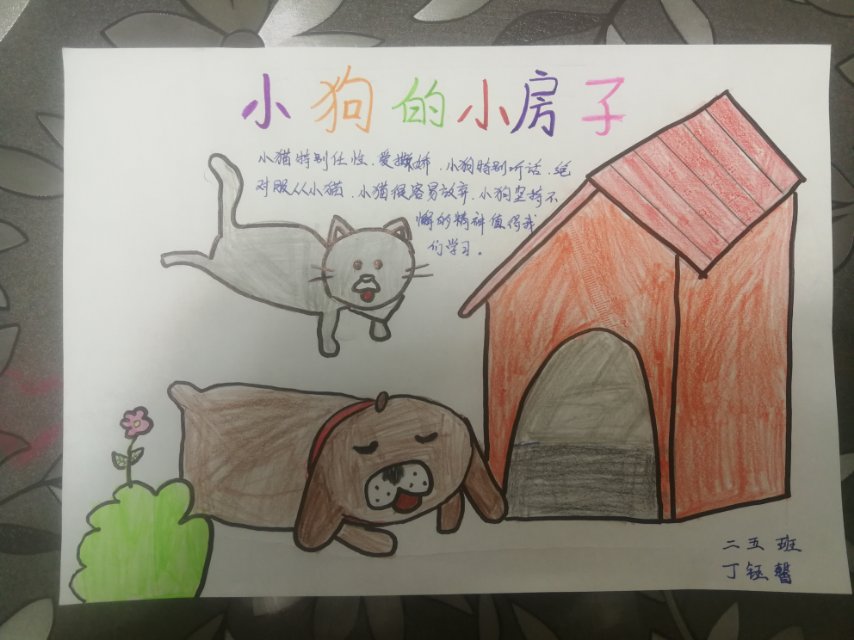 小狗的小房子
小猫特别任性、爱撒娇、小狗特别听话、绝
对服从小猫、小猫很容易放弃、小狗坚持不
懈的精神值得我
们学习。
二五班
丁钰馨